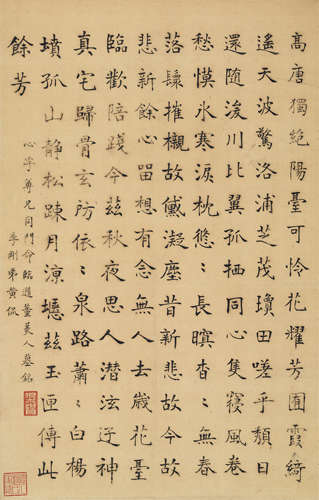 高唐獨絕陽臺可憐花耀芳囿霞綺
遙天波驚洛浦芝茂瓊田嗟乎頹日
還隨湲川比翼孤栖同心隻寢風卷
愁慔水寒淚枕悠〻長瞑杳〻無春
落鬟摧櫬故黛凝塵昔新悲故今故
悲新餘心留想有念無人去歲花臺
臨歡陪踐今茲秋夜思人潛泫迎神
真宅歸骨玄房依〻泉路蕭〻白楊
墳孤山靜松疎月涼瘞茲玉匣傳此
餘芳
心孚尊兄同門命臨隋董美人墓銘
季剛弟黃侃